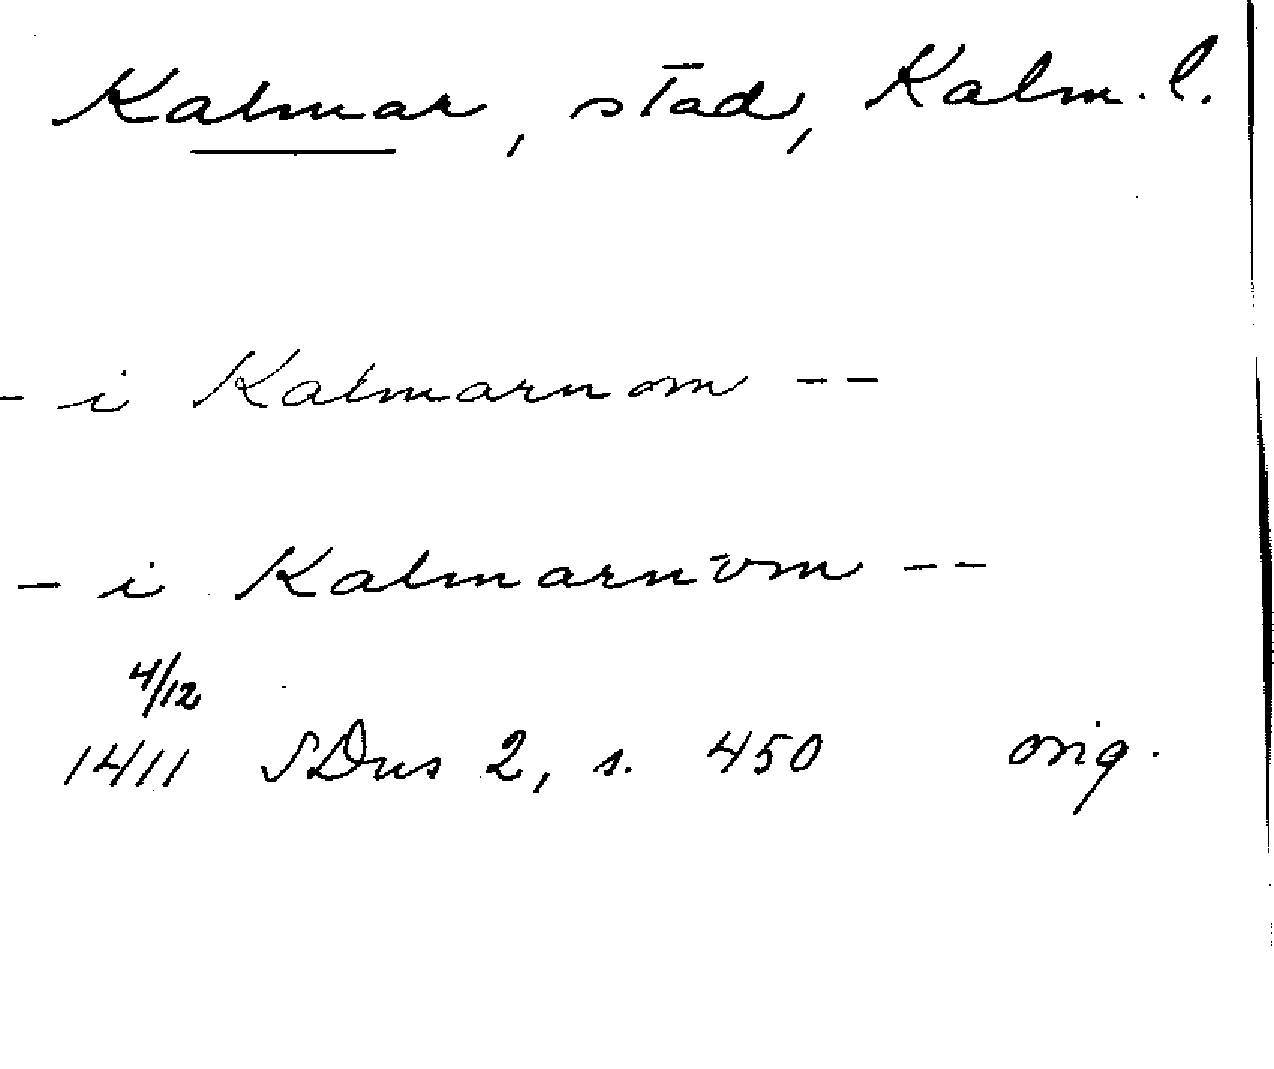 Kalmar, stad, Kalm. l.
- i Kalmarnom --
- i Kalmarnom --
4/12
1411 SDns 2, s. 450 orig.